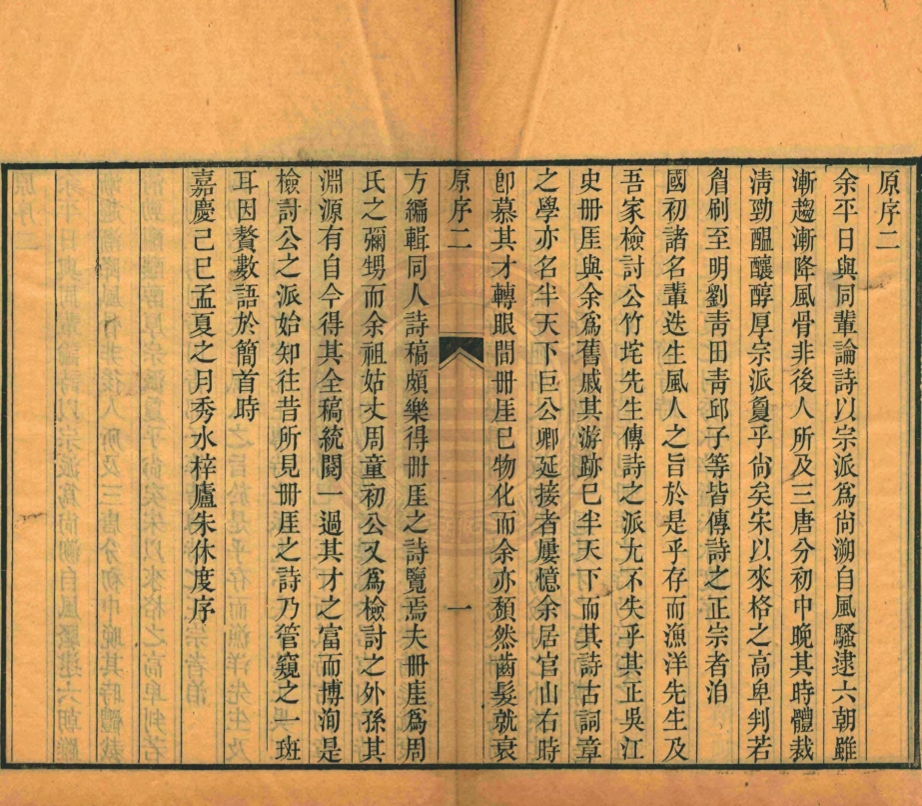 原序二
余平日與同輩論詩以宗派爲尙溯自風騷逮六朝雖
漸趨漸降風骨非後人所及三唐分初中晚其時體裁
淸勁醞釀醇厚宗派敻乎尙矣宋以來格之高卑判若
眉刷至明劉靑田靑邱子等皆傳詩之正宗者洎
國初諸名輩迭生風人之旨於是乎存而漁洋先生及
吾家檢討公竹垞先生傳詩之派尤不失乎其正吳江
史冊厓與余爲舊戚其游跡已半天下而其詩古詞章
之學亦名半天下巨公卿延接者屢憶余居官山右時
卽慕其才轉眼間冊厓已物化而余亦頽然齒髮就衰
原序二 一
方編輯同人詩稿頗樂得冊厓之詩覽焉夫冊厓爲周
氏之彌甥而余祖姑丈周童初公又爲檢討之外孫其
淵源有自今得其全稿統閱一過其才之富而博洵是
檢討公之派始知往昔所見冊厓之詩乃管窺之一斑
耳因贅數語於簡首時
嘉慶己巳孟夏之月秀水梓廬朱休度序